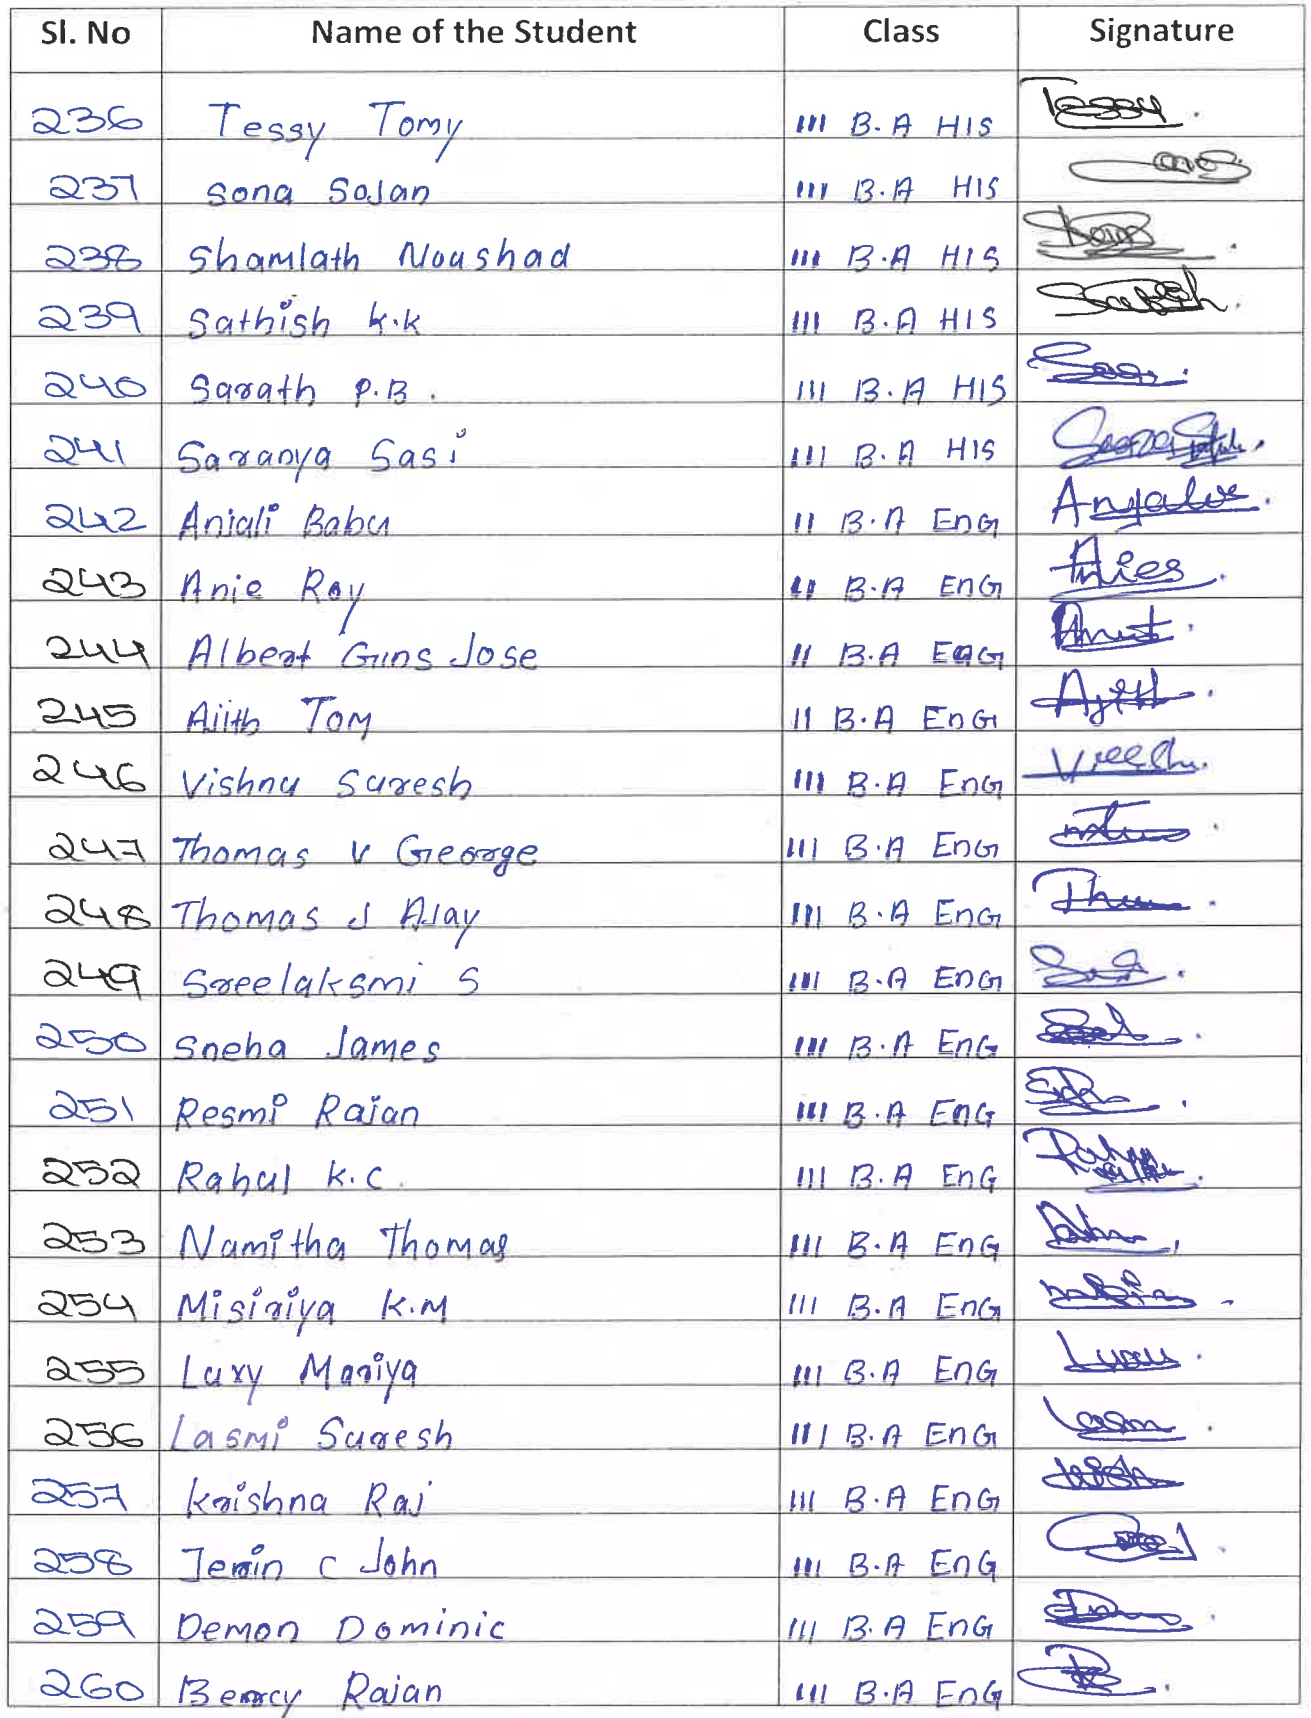 Sl. No Name of the Student Class Signature
236 Tessy Tomy III B.A HIS Tessy
237 Sona Sojan III B.A HIS
238 Shamlath Noushad III B.A HIS
239 Sathish K.K III B.A HIS
240 Sarath P.B. III B.A HIS
241 Saranya Sasi III B.A HIS
242 Anjali Babu II B.A EnG
243 Anie Roy II B.A EnG
244 Albert Gins Jose II B.A EnG
245 Ajith Tom II B.A EnG Ajith
246 Vishnu Suresh III B.A EnG
247 Thomas V George III B.A EnG
248 Thomas J Ajay III B.A EnG
249 Sreelaksmi S III B.A EnG
250 Sneha James III B.A EnG
251 Resmi Rajan III B.A EnG
252 Rahul K.C. III B.A EnG
253 Namitha Thomas III B.A EnG
254 Misiriya K.M III B.A EnG
255 Luxy Mariya III B.A EnG
256 Lasmi Suresh III B.A EnG
257 Krishna Raj III B.A EnG
258 Jerin C John III B.A EnG
259 Demon Dominic III B.A EnG
260 Rajan III B.A EnG